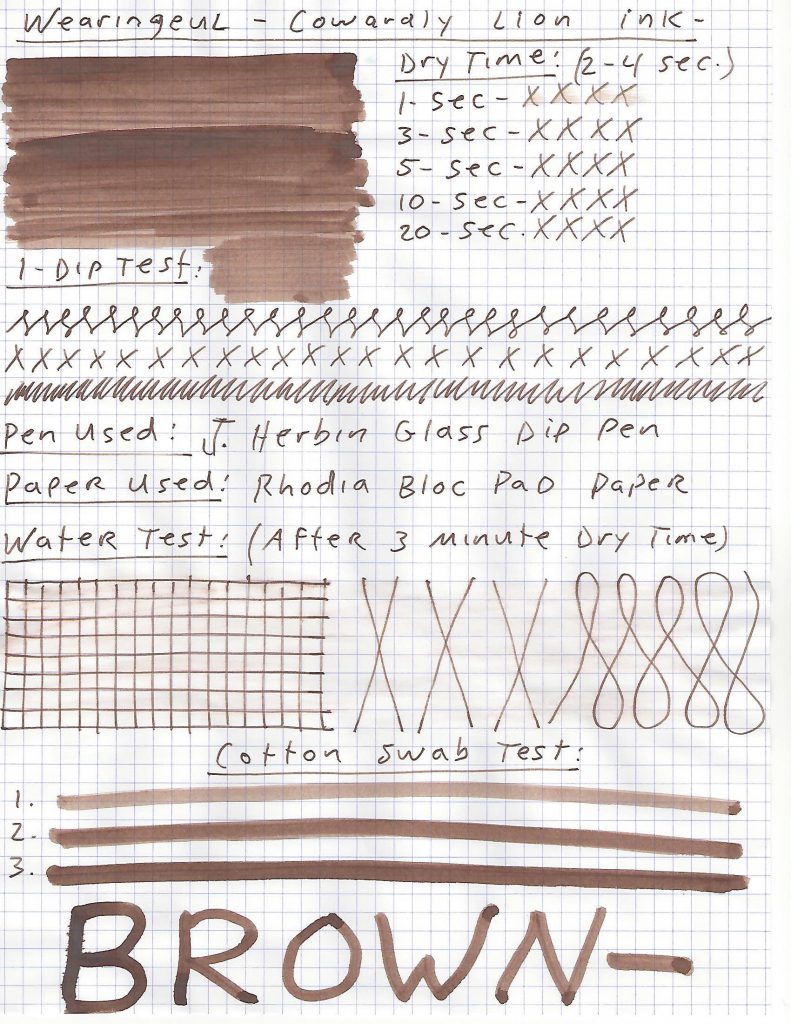 Wearingeul - Cowardly Lion ink -
Dry Time: (2-4 sec.)
1- sec - X X X X
3- sec - X X X X
5- sec - X X X X
10- sec - X X X X
20- sec. X X X X
1-Dip Test:
X X X X X X X X X X X X X X X X X X X X X X X X X X X X
Pen Used: J. Herbin Glass Dip Pen
Paper Used: Rhodia Bloc Pad Paper
Water Test: (After 3 minute Dry Time)
X X X
Cotton Swab Test:
1.
2.
3.
BROWN-